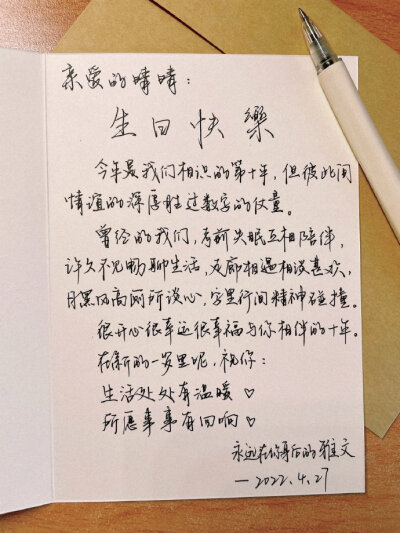 亲爱的晴晴：
生日快樂
今年是我们相识的第十年，但彼此间
情谊的深厚胜过数字的仅量。
曾经的我们，考前失眠互相陪伴，
许久不见畅聊生活，走廊相遇相谈甚欢，
月黑风高厕所谈心，字里行间精神碰撞。
很开心很幸运很幸福与你相伴的十年。
在新的一岁里呢，祝你：
生活处处有温暖♡
所愿事事有回响♡
永远在你身后的雅文
—2022.4.27